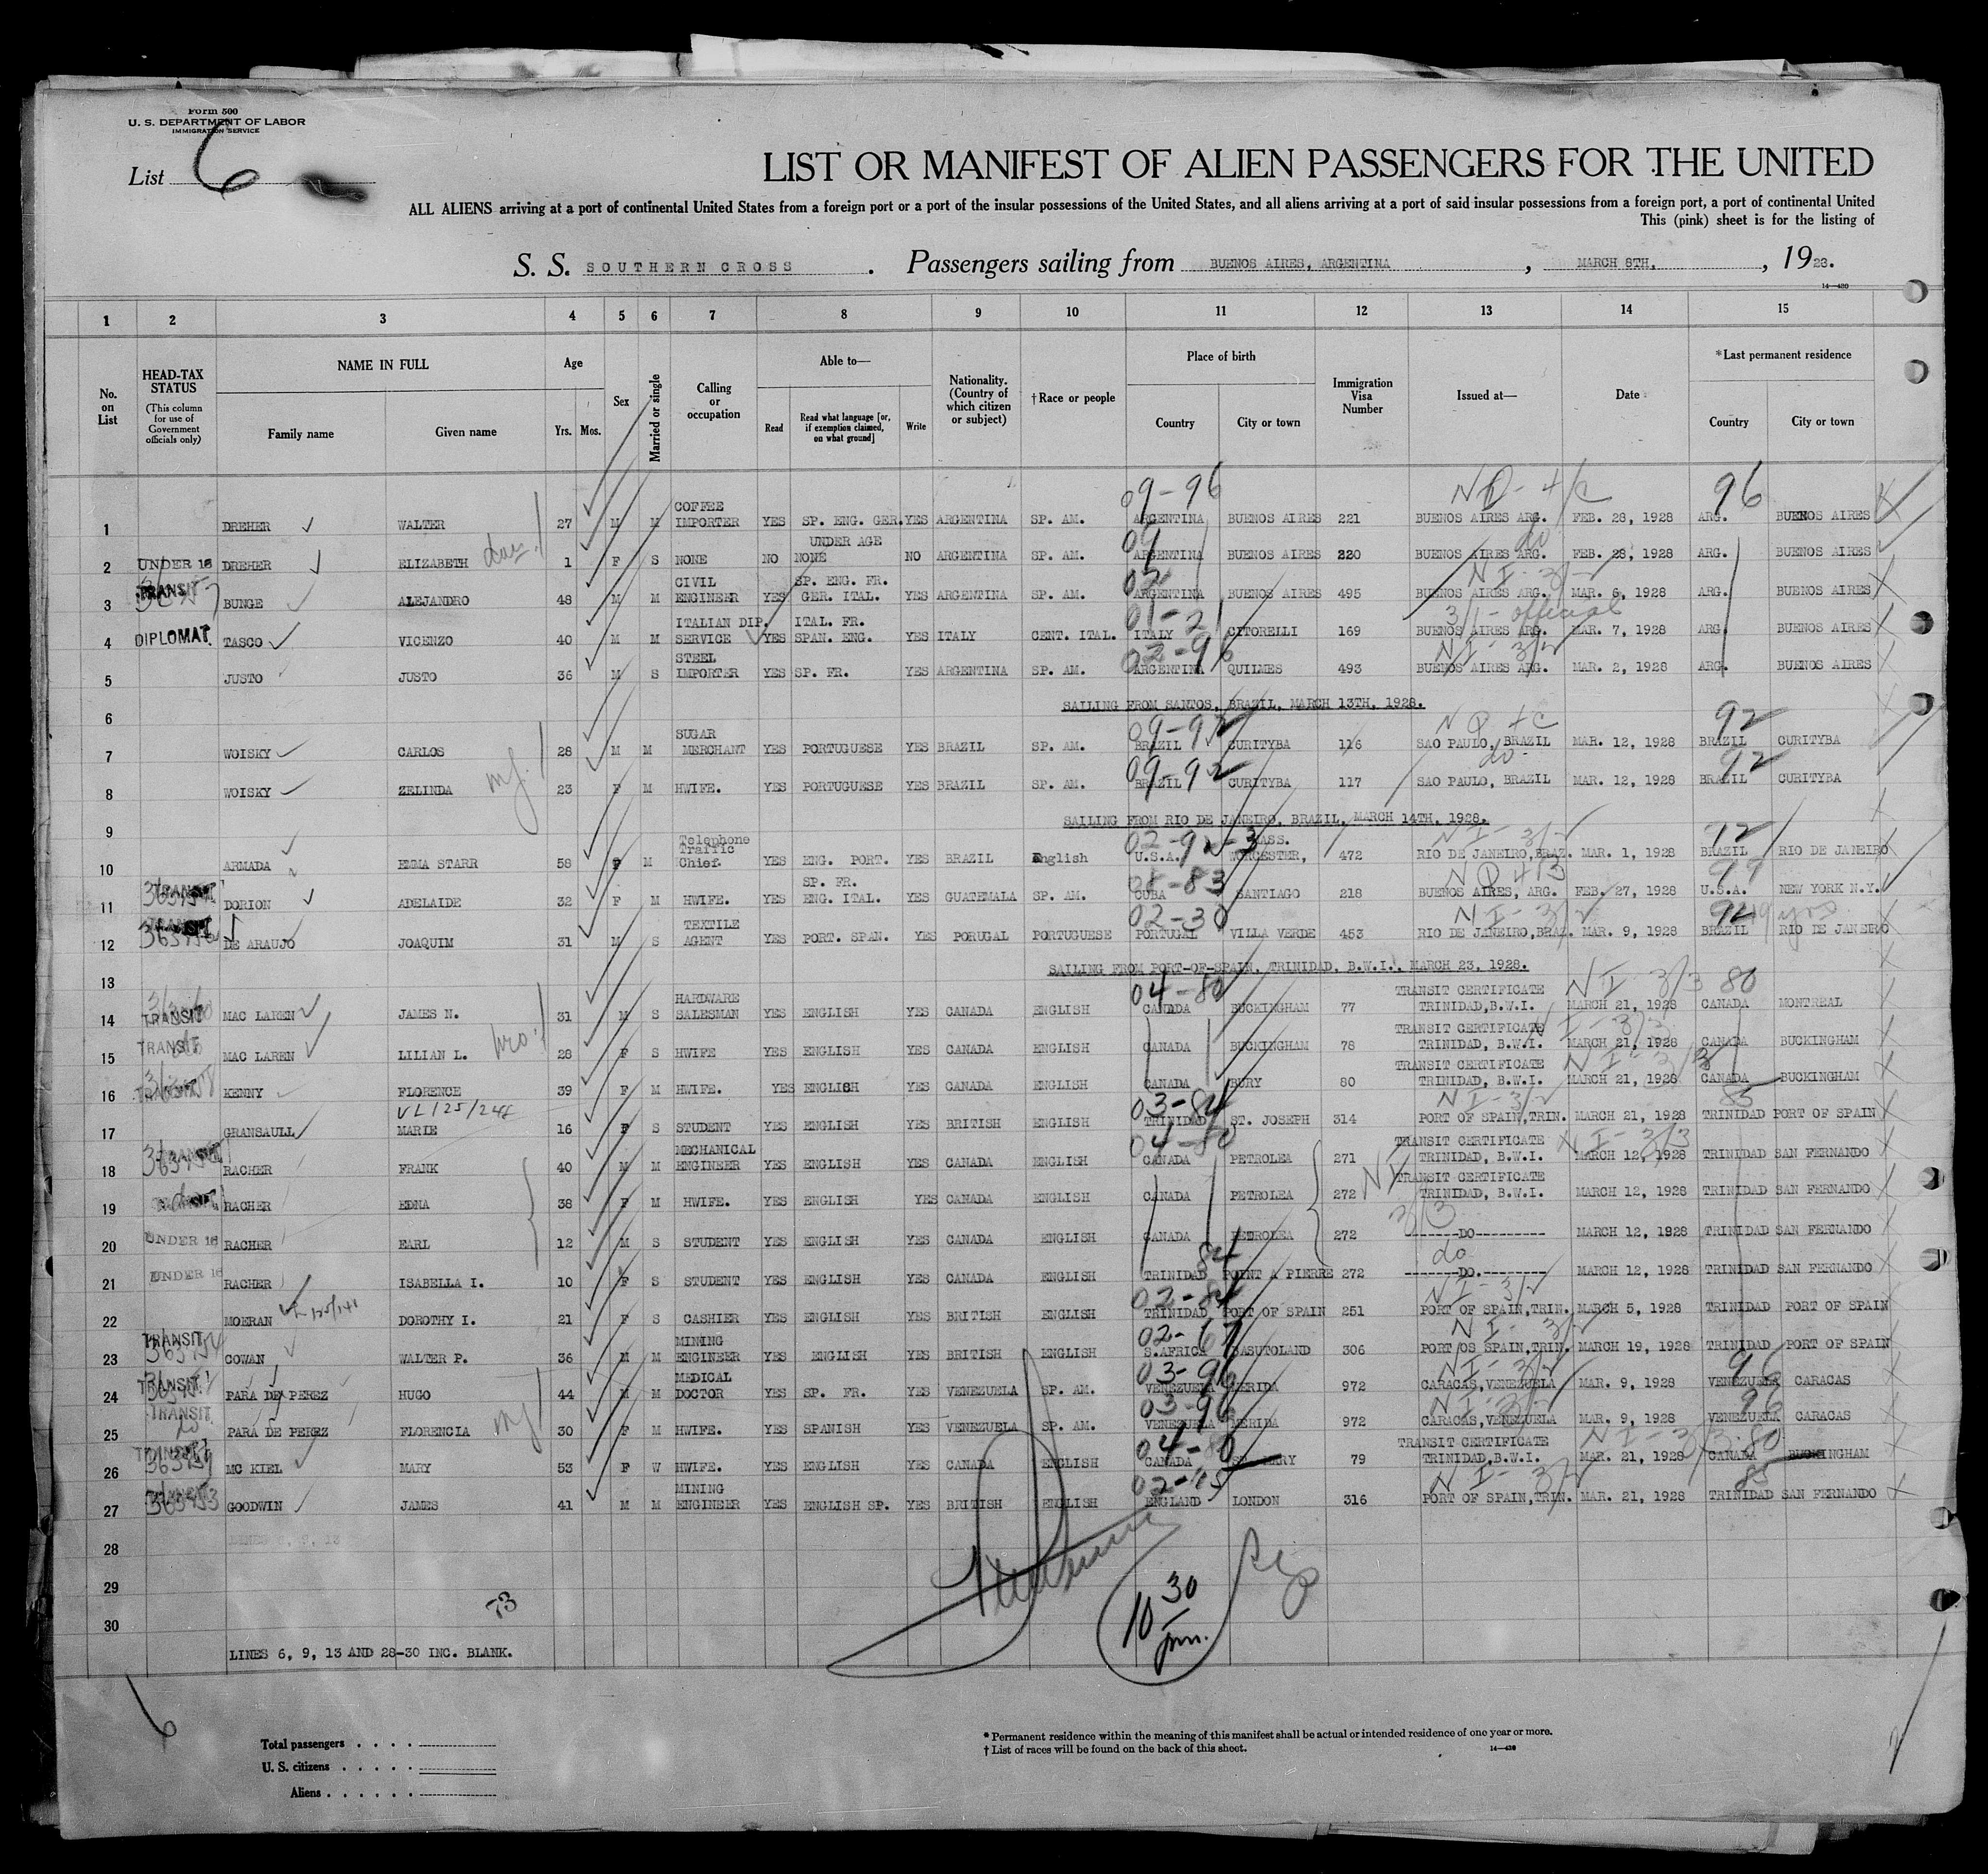 Form 500
U. S. DEPARTMENT OF LABOR
IMMIGRATION SERVICE
List 6
LIST OR MANIFEST OF ALIEN PASSENGERS FOR THE UNITED
ALL ALIENS arriving at a port of continental United States from a foreign port or a port of the insular possessions of the United States, and all aliens arriving at a port of said insular possessions from a foreign port, a port of continental United
This (pink) sheet is for the listing of
S. S. SOUTHERN CROSS . Passengers sailing from BUENOS AIRES, ARGENTINA , MARCH 8TH, , 1928.
14—420
1 2 3 4 5 6 7 8 9 10 11 12 13 14 15
No. on List
HEAD-TAX STATUS (This column for use of Government officials only)
NAME IN FULL Family name Given name
Age Yrs. Mos.
Sex
Married or single
Calling or occupation
Able to— Read Read what language [or, if exemption claimed, on what ground] Write
Nationality. (Country of which citizen or subject)
†Race or people
Place of birth Country City or town
Immigration Visa Number
Issued at—
Date
*Last permanent residence Country City or town
09-96 96
1 DREHER WALTER 27 M M COFFEE IMPORTER YES SP. ENG. GER. YES ARGENTINA SP. AM. ARGENTINA BUENOS AIRES 221 BUENOS AIRES ARG. FEB. 28, 1928 ARG. BUENOS AIRES
2 UNDER 16 DREHER ELIZABETH dau. 1 F S NONE NO UNDER AGE NONE NO ARGENTINA SP. AM. 09 ARGENTINA BUENOS AIRES 220 do BUENOS AIRES ARG. FEB. 28, 1928 ARG. BUENOS AIRES
3 TRANSIT BUNGE ALEJANDRO 48 M M CIVIL ENGINEER YES SP. ENG. FR. GER. ITAL. YES ARGENTINA SP. AM. 02 ARGENTINA BUENOS AIRES 495 NI-3/2 BUENOS AIRES ARG. MAR. 6, 1928 ARG. BUENOS AIRES
4 DIPLOMAT. TASCO VICENZO 40 M M ITALIAN DIP. SERVICE YES ITAL. FR. SPAN. ENG. YES ITALY CENT. ITAL. 01-21 ITALY CITORELLI 169 3/1-official BUENOS AIRES ARG. MAR. 7, 1928 ARG. BUENOS AIRES
5 JUSTO JUSTO 36 M S STEEL IMPORTER YES SP. FR. YES ARGENTINA SP. AM. 02-96 ARGENTINA QUILMES 493 NI-3/2 BUENOS AIRES ARG. MAR. 2, 1928 ARG. BUENOS AIRES
6 SAILING FROM SANTOS, BRAZIL, MARCH 13TH, 1928.
7 WOISKY CARLOS 28 M M SUGAR MERCHANT YES PORTUGUESE YES BRAZIL SP. AM. 09-92 BRAZIL CURITYBA 116 SAO PAULO, BRAZIL MAR. 12, 1928 92 BRAZIL CURITYBA
8 WOISKY ZELINDA 23 F M HWIFE. YES PORTUGUESE YES BRAZIL SP. AM. 09-92 BRAZIL CURITYBA 117 do SAO PAULO, BRAZIL MAR. 12, 1928 92 BRAZIL CURITYBA
9 SAILING FROM RIO DE JANEIRO, BRAZIL, MARCH 14TH, 1928.
10 ARMADA EMMA STARR 58 F M Telephone Traffic Chief. YES ENG. PORT. YES BRAZIL English 02-92-3 U.S.A. MASS. WORCESTER, 472 NI-3/2 RIO DE JANEIRO,BRAZ. MAR. 1, 1928 92 BRAZIL RIO DE JANEIRO
11 TRANSIT DORION ADELAIDE 32 F M HWIFE. YES SP. FR. ENG. ITAL. YES GUATEMALA SP. AM. 08-83 CUBA SANTIAGO 218 BUENOS AIRES, ARG. FEB. 27, 1928 99 U.S.A. NEW YORK N.Y.
12 TRANSIT DE ARAUJO JOAQUIM 31 M S TEXTILE AGENT YES PORT. SPAN. YES PORUGAL PORTUGUESE 02-30 PORTUGAL VILLA VERDE 453 NI-3/2 RIO DE JANEIRO,BRAZ. MAR. 9, 1928 92 BRAZIL RIO DE JANEIRO
13 SAILING FROM PORT-OF-SPAIN, TRINIDAD, B.W.I., MARCH 23, 1928.
14 TRANSIT MAC LAREN JAMES N. 31 M S HARDWARE SALESMAN YES ENGLISH YES CANADA ENGLISH 04-80 CANADA BUCKINGHAM 77 TRANSIT CERTIFICATE TRINIDAD,B.W.I. NI-3/3 MARCH 21, 1928 80 CANADA MONTREAL
15 TRANSIT MAC LAREN LILIAN L. 28 F S HWIFE YES ENGLISH YES CANADA ENGLISH CANADA BUCKINGHAM 78 TRANSIT CERTIFICATE TRINIDAD, B.W.I. NI-3/3 MARCH 21, 1928 CANADA BUCKINGHAM
16 TRANSIT KENNY FLORENCE 39 F M HWIFE. YES ENGLISH YES CANADA ENGLISH CANADA BURY 80 TRANSIT CERTIFICATE TRINIDAD, B.W.I. NI-3/3 MARCH 21, 1928 CANADA BUCKINGHAM
17 GRANSAULL VL125/244 MARIE 16 F S STUDENT YES ENGLISH YES BRITISH ENGLISH 03-84 TRINIDAD ST. JOSEPH 314 NI-3/2 PORT OF SPAIN,TRIN. MARCH 21, 1928 85 TRINIDAD PORT OF SPAIN
18 TRANSIT RACHER FRANK 40 M M MECHANICAL ENGINEER YES ENGLISH YES CANADA ENGLISH 04-80 CANADA PETROLEA 271 TRANSIT CERTIFICATE TRINIDAD, B.W.I. NI-3/3 MARCH 12, 1928 TRINIDAD SAN FERNANDO
19 RACHER EDNA 38 F M HWIFE. YES ENGLISH YES CANADA ENGLISH CANADA PETROLEA 272 NI TRANSIT CERTIFICATE TRINIDAD, B.W.I. MARCH 12, 1928 TRINIDAD SAN FERNANDO
20 UNDER 16 RACHER EARL 12 M S STUDENT YES ENGLISH YES CANADA ENGLISH CANADA PETROLEA 272 3/3 -------DO--------- MARCH 12, 1928 TRINIDAD SAN FERNANDO
21 UNDER 16 RACHER ISABELLA I. 10 F S STUDENT YES ENGLISH YES CANADA ENGLISH 84 TRINIDAD POINT A PIERRE 272 do -------DO.-------- MARCH 12, 1928 TRINIDAD SAN FERNANDO
22 MOERAN DOROTHY I. 21 F S CASHIER YES ENGLISH YES BRITISH ENGLISH 02-84 TRINIDAD PORT OF SPAIN 251 NI-3/2 PORT OF SPAIN,TRIN. MARCH 5, 1928 TRINIDAD PORT OF SPAIN
23 TRANSIT COWAN WALTER P. 36 M M MINING ENGINEER YES ENGLISH YES BRITISH ENGLISH 02-67 S.AFRICA BASUTOLAND 306 NI-3/2 PORT OS SPAIN,TRIN. MARCH 19, 1928 TRINIDAD PORT OF SPAIN
24 TRANSIT PARA DE PEREZ HUGO 44 M M MEDICAL DOCTOR YES SP. FR. YES VENEZUELA SP. AM. 03-96 VENEZUELA MERIDA 972 NI-3/2 CARACAS,VENEZUELA MAR. 9, 1928 96 VENEZUELA CARACAS
25 TRANSIT do PARA DE PEREZ FLORENCIA 30 F M HWIFE. YES SPANISH YES VENEZUELA SP. AM. 03-96 VENEZUELA MERIDA 972 NI-3/2 CARACAS,VENEZUELA MAR. 9, 1928 96 VENEZUELA CARACAS
26 TRANSIT MC KIEL MARY 53 F W HWIFE. YES ENGLISH YES CANADA ENGLISH 04-80 CANADA 79 TRANSIT CERTIFICATE TRINIDAD,B.W.I. NI-3/3 MAR. 21, 1928 80 CANADA BUCKINGHAM
27 TRANSIT GOODWIN JAMES 41 M M MINING ENGINEER YES ENGLISH SP. YES BRITISH ENGLISH 02-45 ENGLAND LONDON 316 NI-3/2 PORT OF SPAIN,TRIN. MAR. 21, 1928 85 TRINIDAD SAN FERNANDO
28
29
30
73
10 30 pm.
LINES 6, 9, 13 AND 28-30 INC. BLANK.
6
Total passengers . . . .
U. S. citizens . . . . .
Aliens . . . . . .
* Permanent residence within the meaning of this manifest shall be actual or intended residence of one year or more.
† List of races will be found on the back of this sheet.
14—420